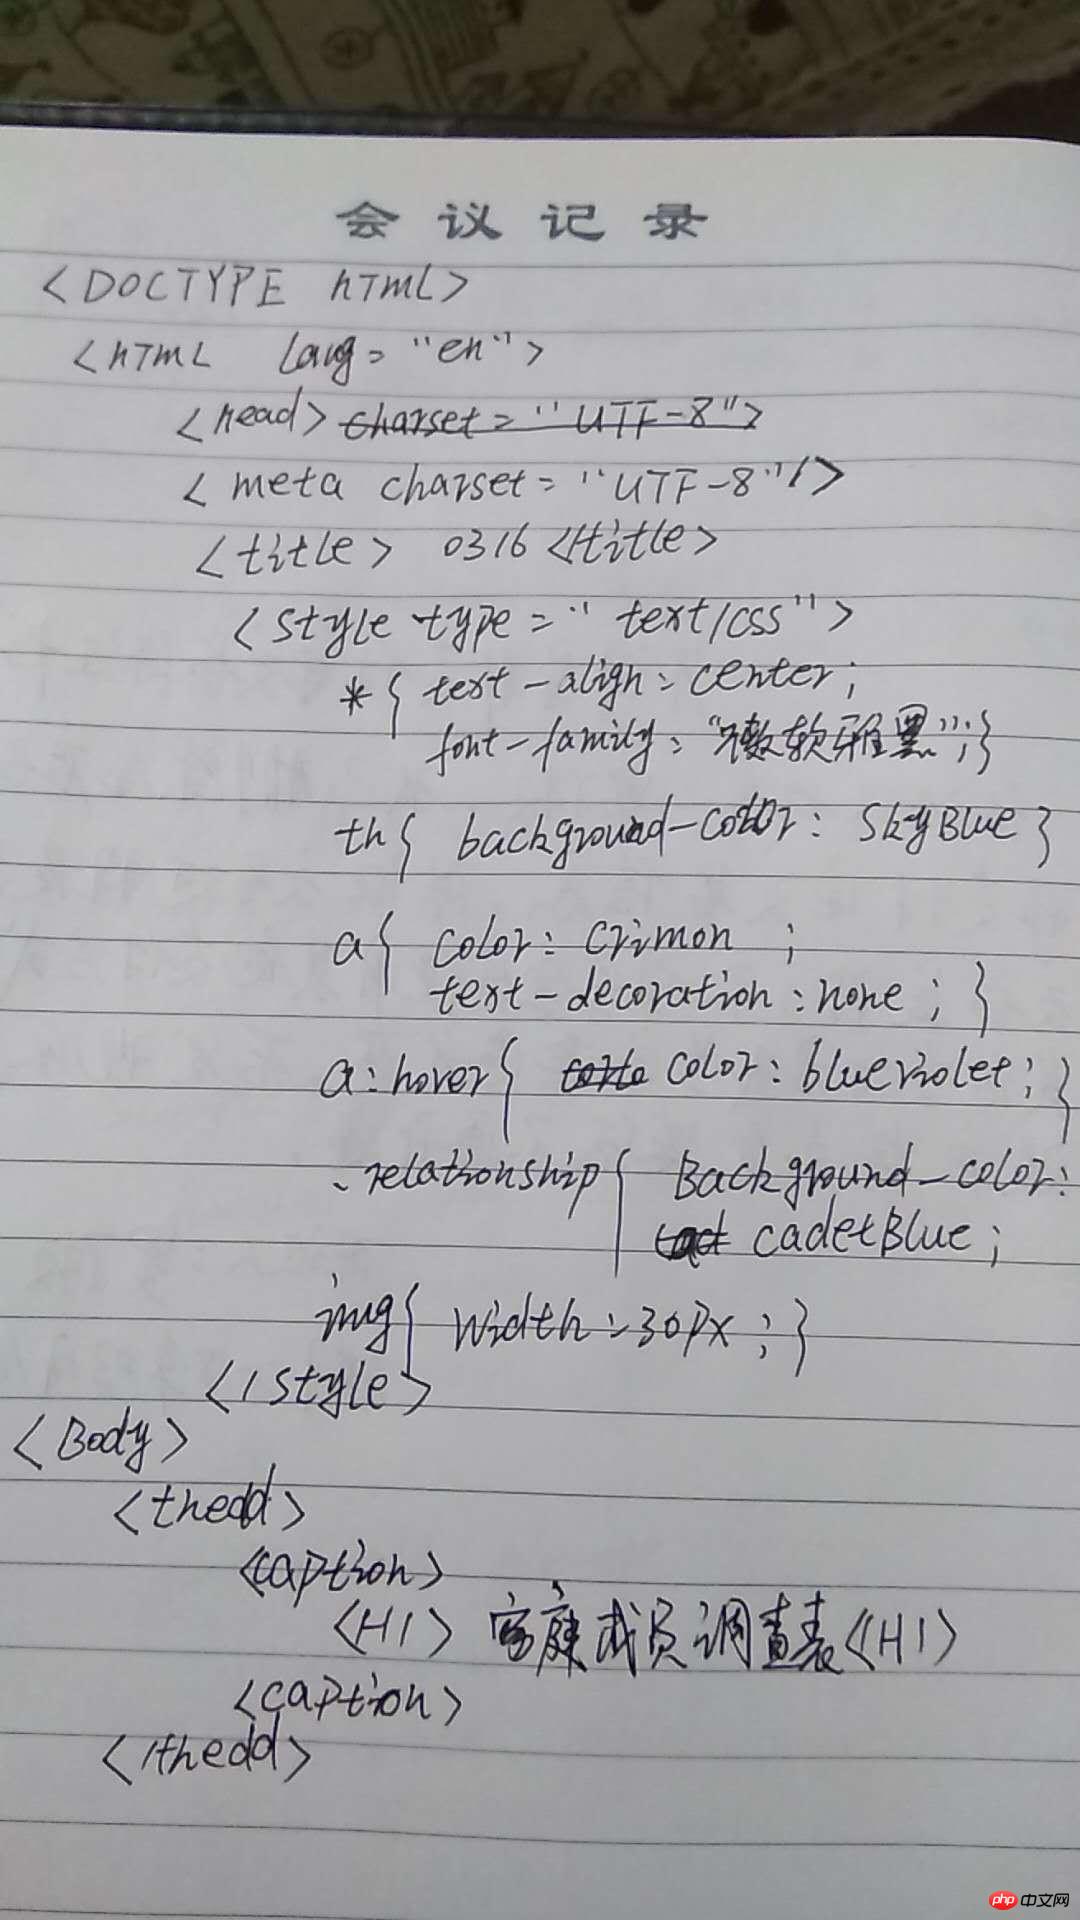 会议记录
<DOCTYPE html>
<html lang="en">
<head> charset="UTF-8">
<meta charset="UTF-8"/>
<title> 0316 </title>
<style type="text/css">
*{ text-align: center;
font-family: "微软雅黑";}
th{ background-color: SkyBlue }
a{ color: crimon ;
text-decoration: none; }
a:hover{ color: blueviolet; }
.relationship{ Background-color:
cadetBlue;
img{ width: 30px; }
</style>
<Body>
<thedd>
<caption>
<H1> 家庭成员调查表<H1>
<caption>
</thedd>
php 中文网